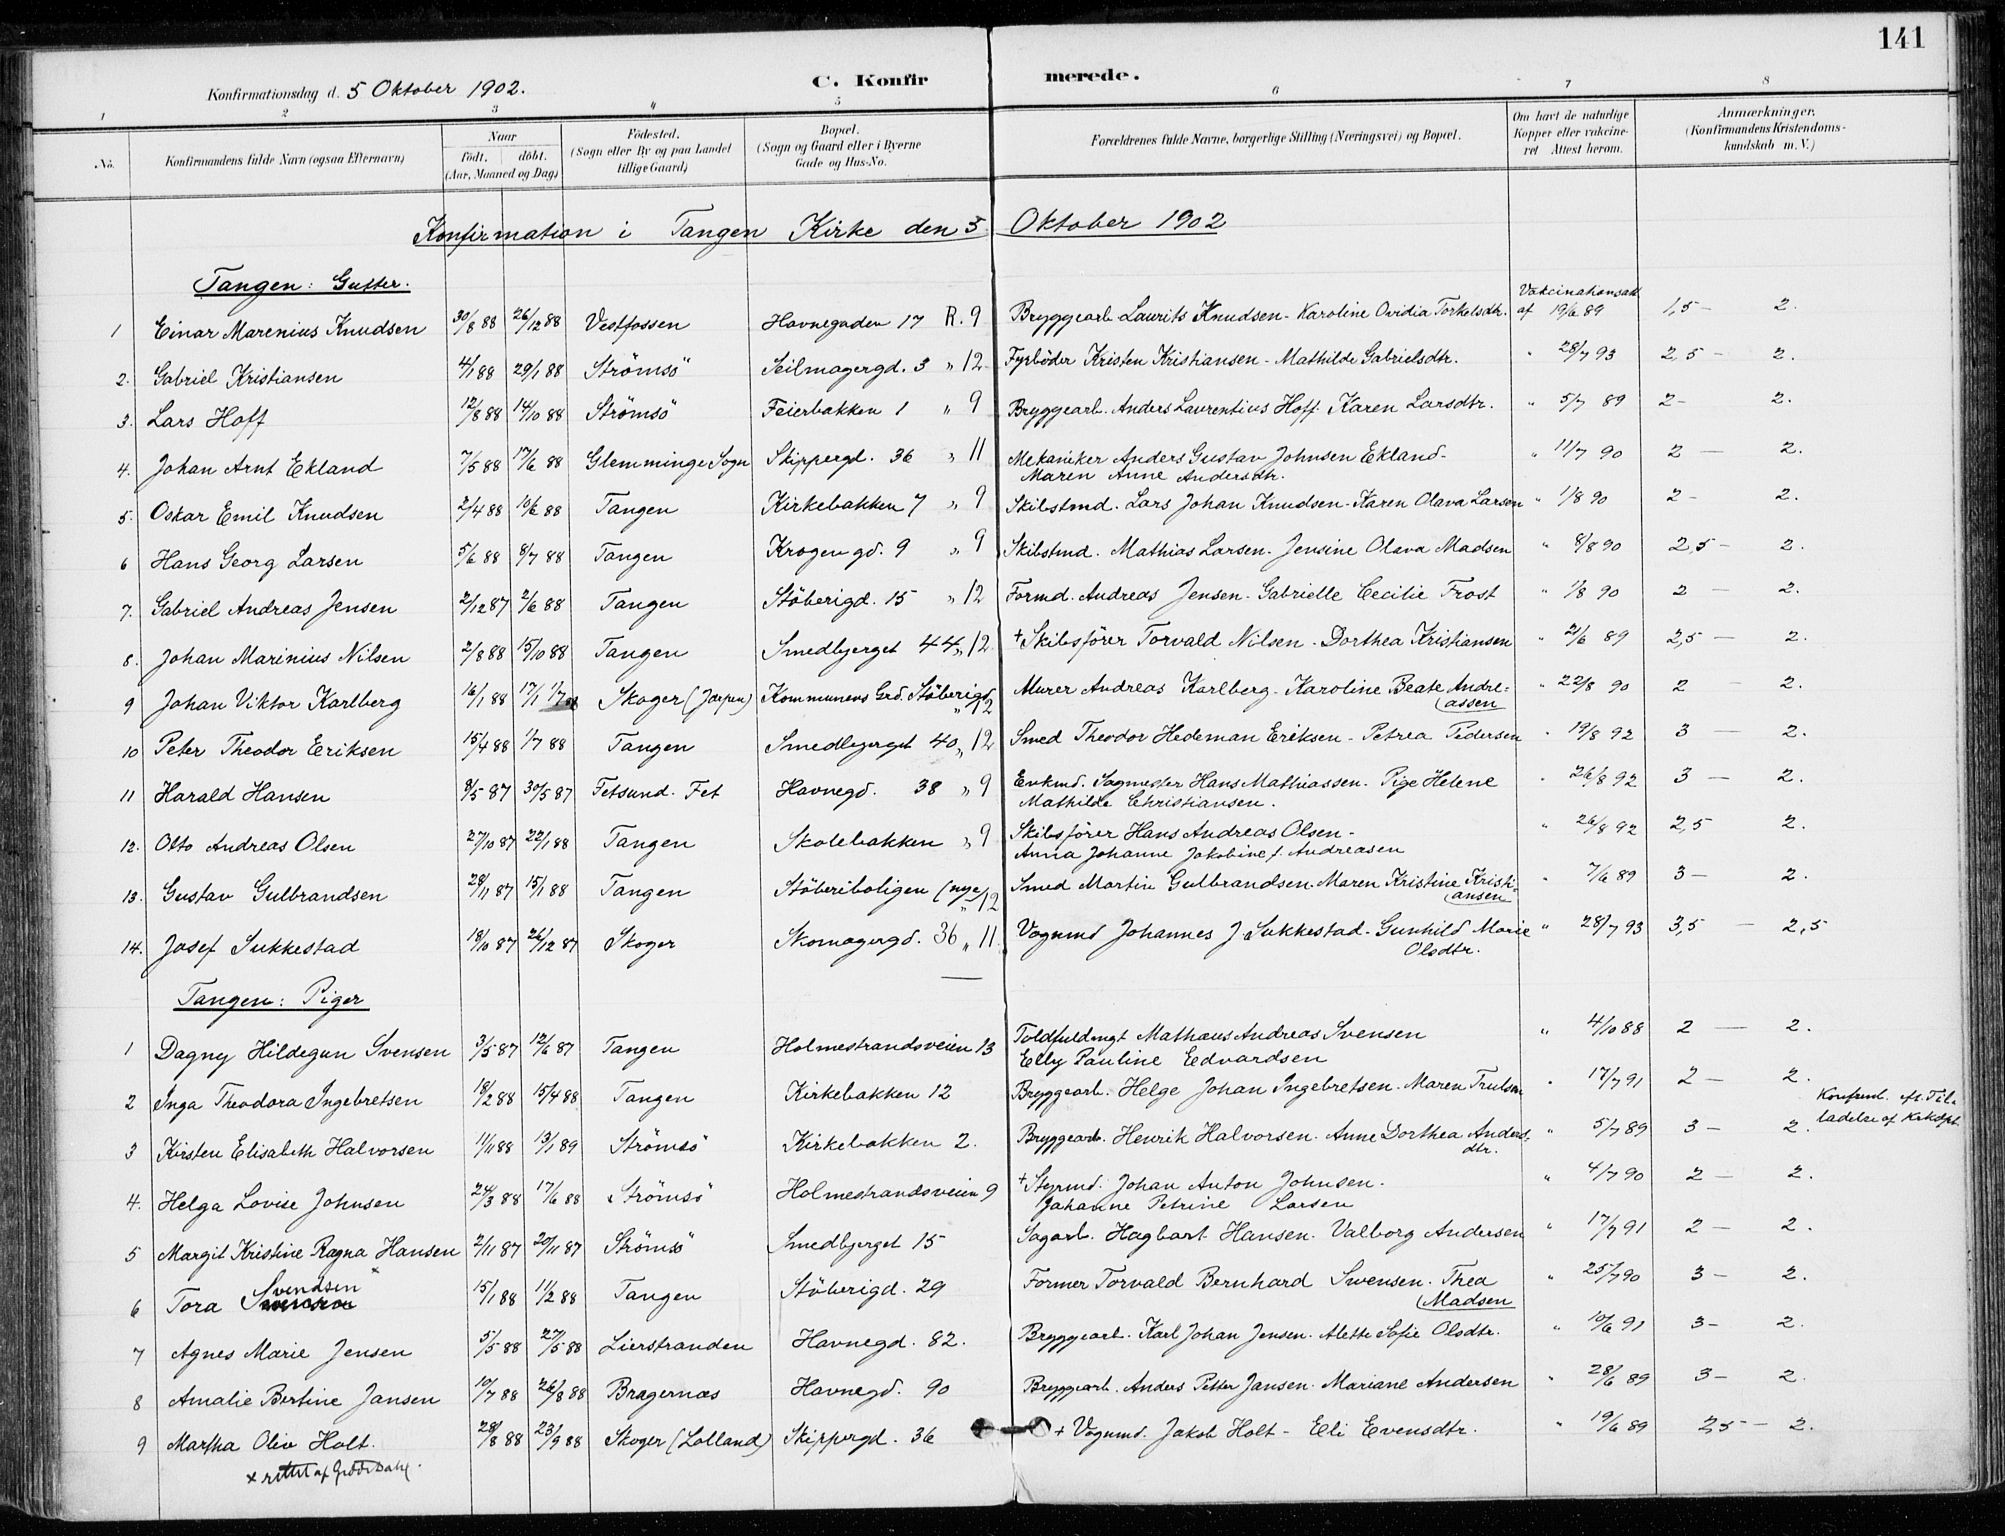 141
C. Konfirmerede.
Konfirmationsdag d. 5 Oktober 1902.
1 2 3 4 5 6 7 8
No. Konfirmandens fulde Navn (ogsaa Efternavn) Naar födt. döbt. (Aar, Maaned og Dag) Födested. (Sogn eller By og paa Landet tillige Gaard) Bopæl. (Sogn og Gaard eller i Byerne Gade og Hus-No. Forældrenes fulde Navne, borgerlige Stilling (Næringsvei) og Bopæl. Om havt de naturlige Kopper eller vakcineret Attest herom. Anmærkninger. (Konfirmandens Kristendomskundskab m. V.)
Konfirmation i Tangen Kirke den 5 Oktober 1902
Tangen: Gutter.
1 Einar Marenius Knudsen 30/8 88 26/12 88 Vestfossen Havnegaden 17 R. 9 Bryggearb Laurits Knudsen - Karoline Ovidia Torkelsdtr. Vakcinationsatt af 19/6 89 1,5 - 2.
2. Gabriel Kristiansen 4/1 88 29/1 88 Strömsö Seilmagergd. 3 " 12 Fyrböder Kristen Kristiansen - Mathilde Gabrielsdtr. " 28/7 93 2,5 - 2.
3. Lars Hoff 12/8 88 14/10 88 Strömsö Feierbakken 1 " 9 Bryggearb. Anders Laurentius Hoff. Karen Larsdtr. " 5/7 89 2 - 2.
4. Johan Arnt Ekland 7/5 88 17/6 88 Glemminge Sogn Skippergd. 36 " 11 Mekaniker Anders Gustav Johnsen Ekland - Maren Anne Andersdtr. " 11/7 90 2 - 2.
5. Oskar Emil Knudsen 2/4 88 10/6 88 Tangen Kirkebakken 7 " 9 Skibstmd. Lars Johan Knudsen - Karen Olava Larsen " 1/8 90 2 - 2.
6 Hans Georg Larsen 5/6 88 8/7 88 Tangen Krogen gd. 9 " 9 Skibstmd. Mathias Larsen - Jensine Olava Madsen " 8/8 90 2,5 - 2.
7. Gabriel Andreas Jensen 2/12 87 2/6 88 Tangen Stöberigd. 15 " 12 Formd. Andreas Jensen - Gabrielle Cecilie Frost " 1/8 90 2 - 2.
8. Johan Marinius Nilsen 2/8 88 15/10 88 Tangen Smedbjerget 44 " 12 + Skibsförer Torvald Nilsen - Dorthea Kristiansen " 21/6 89 2,5 - 2.
9 Johan Viktor Karlberg 16/1 88 17/1 Skoger (Jarpen) Kommunens Grd. Stöberigd. " 12 Murer Andreas Karlberg - Karoline Beate Andreassen " 22/8 90 2 - 2.
10 Peter Theodor Eriksen 15/4 88 1/7 88 Tangen Smedbjerget 40 " 12 Smed Theodor Hedeman Eriksen - Petrea Pedersen " 19/8 92 3 - 2.
11 Harald Hansen 9/5 87 30/5 87 Fetsund. Fet Havnegd. 38 " 9 Enkmd. Sagmester Hans Mathiassen - Pige Helene Mathilde Christiansen. " 26/8 92 3 - 2.
12. Otto Andreas Olsen 27/10 87 22/1 88 Tangen Skolebakken " 9 Skibsförer Hans Andreas Olsen - Anna Johanne Jakobine f. Andreasen " 26/8 92 2,5 2.
13. Gustav Gulbrandsen 28/11 87 15/1 88 Tangen Stöberiboligen (nye) " 12 Smed Martin Gulbrandsen - Maren Kristine Kristiansen " 7/6 89 3 - 2.
14. Josef Sukkestad 18/10 87 26/12 87 Skoger Skomagergd. 36 " 11 Vognmd Johannes J Sukkestad - Gunhild Marie Olsdtr. " 28/7 93 3,5 - 2,5
Tangen: Piger
1 Dagny Hildegun Svensen 3/5 87 12/6 87 Tangen Holmestrandsveien 13 Toldfuldmgt Mathæus Andreas Svensen Elly Pauline Edvardsen " 4/10 88 2 - 2.
2 Inga Theodora Ingebretsen 18/2 88 15/4 88 Tangen Kirkebakken 12 Bryggearb. Helge Johan Ingebretsen - Maren Trulsen " 17/7 91 2 - 2.
3 Kirsten Elisabeth Halvorsen 11/11 88 13/1 89 Strömsö Kirkebakken 2. Bryggearb. Henrik Halvorsen - Anne Dorthea Andersdtr. " 5/7 89 3 - 2. Konfirmd. eft. Tilladelse af Kirkedpt.
4. Helga Lovise Johnsen 24/3 88 17/6 88 Strömsö Holmestrandsveien 9 + Styrmd. Johan Anton Johnsen. Johanne Petrine Larsen " 4/7 90 2 - 2.
5 Margit Kristine Ragna Hansen 2/11 87 20/11 87 Strömsö Smedbjerget 15 Sagarb. Hagbart Hansen - Valborg Andersen " 17/7 91 2 - 2.
6 Tora Svendsen x 15/1 88 11/2 88 Tangen Stöberigd. 29 Former Torvald Bernhard Swensen - Thea Madsen " 25/7 90 3 - 2.
7 Agnes Marie Jensen 5/5 88 27/5 88 Lierstranden Havnegd. 82. Bryggearb. Karl Johan Jensen - Alette Sofie Olsdtr. " 10/6 91 3 - 2.
8 Amalie Bertine Jansen 10/7 88 26/8 88 Bragernæs Havnegd. 90 Bryggearb. Anders Petter Jansen - Mariane Andersen " 28/6 89 3 - 2.
9 Martha Oliv Holt. 28/8 88 23/9 88 Skoger (Lolland) Skippergd. 36 + Vognmd. Jakob Holt - Eli Evensdtr. " 19/6 89 2,5 - 2.
x rettet af